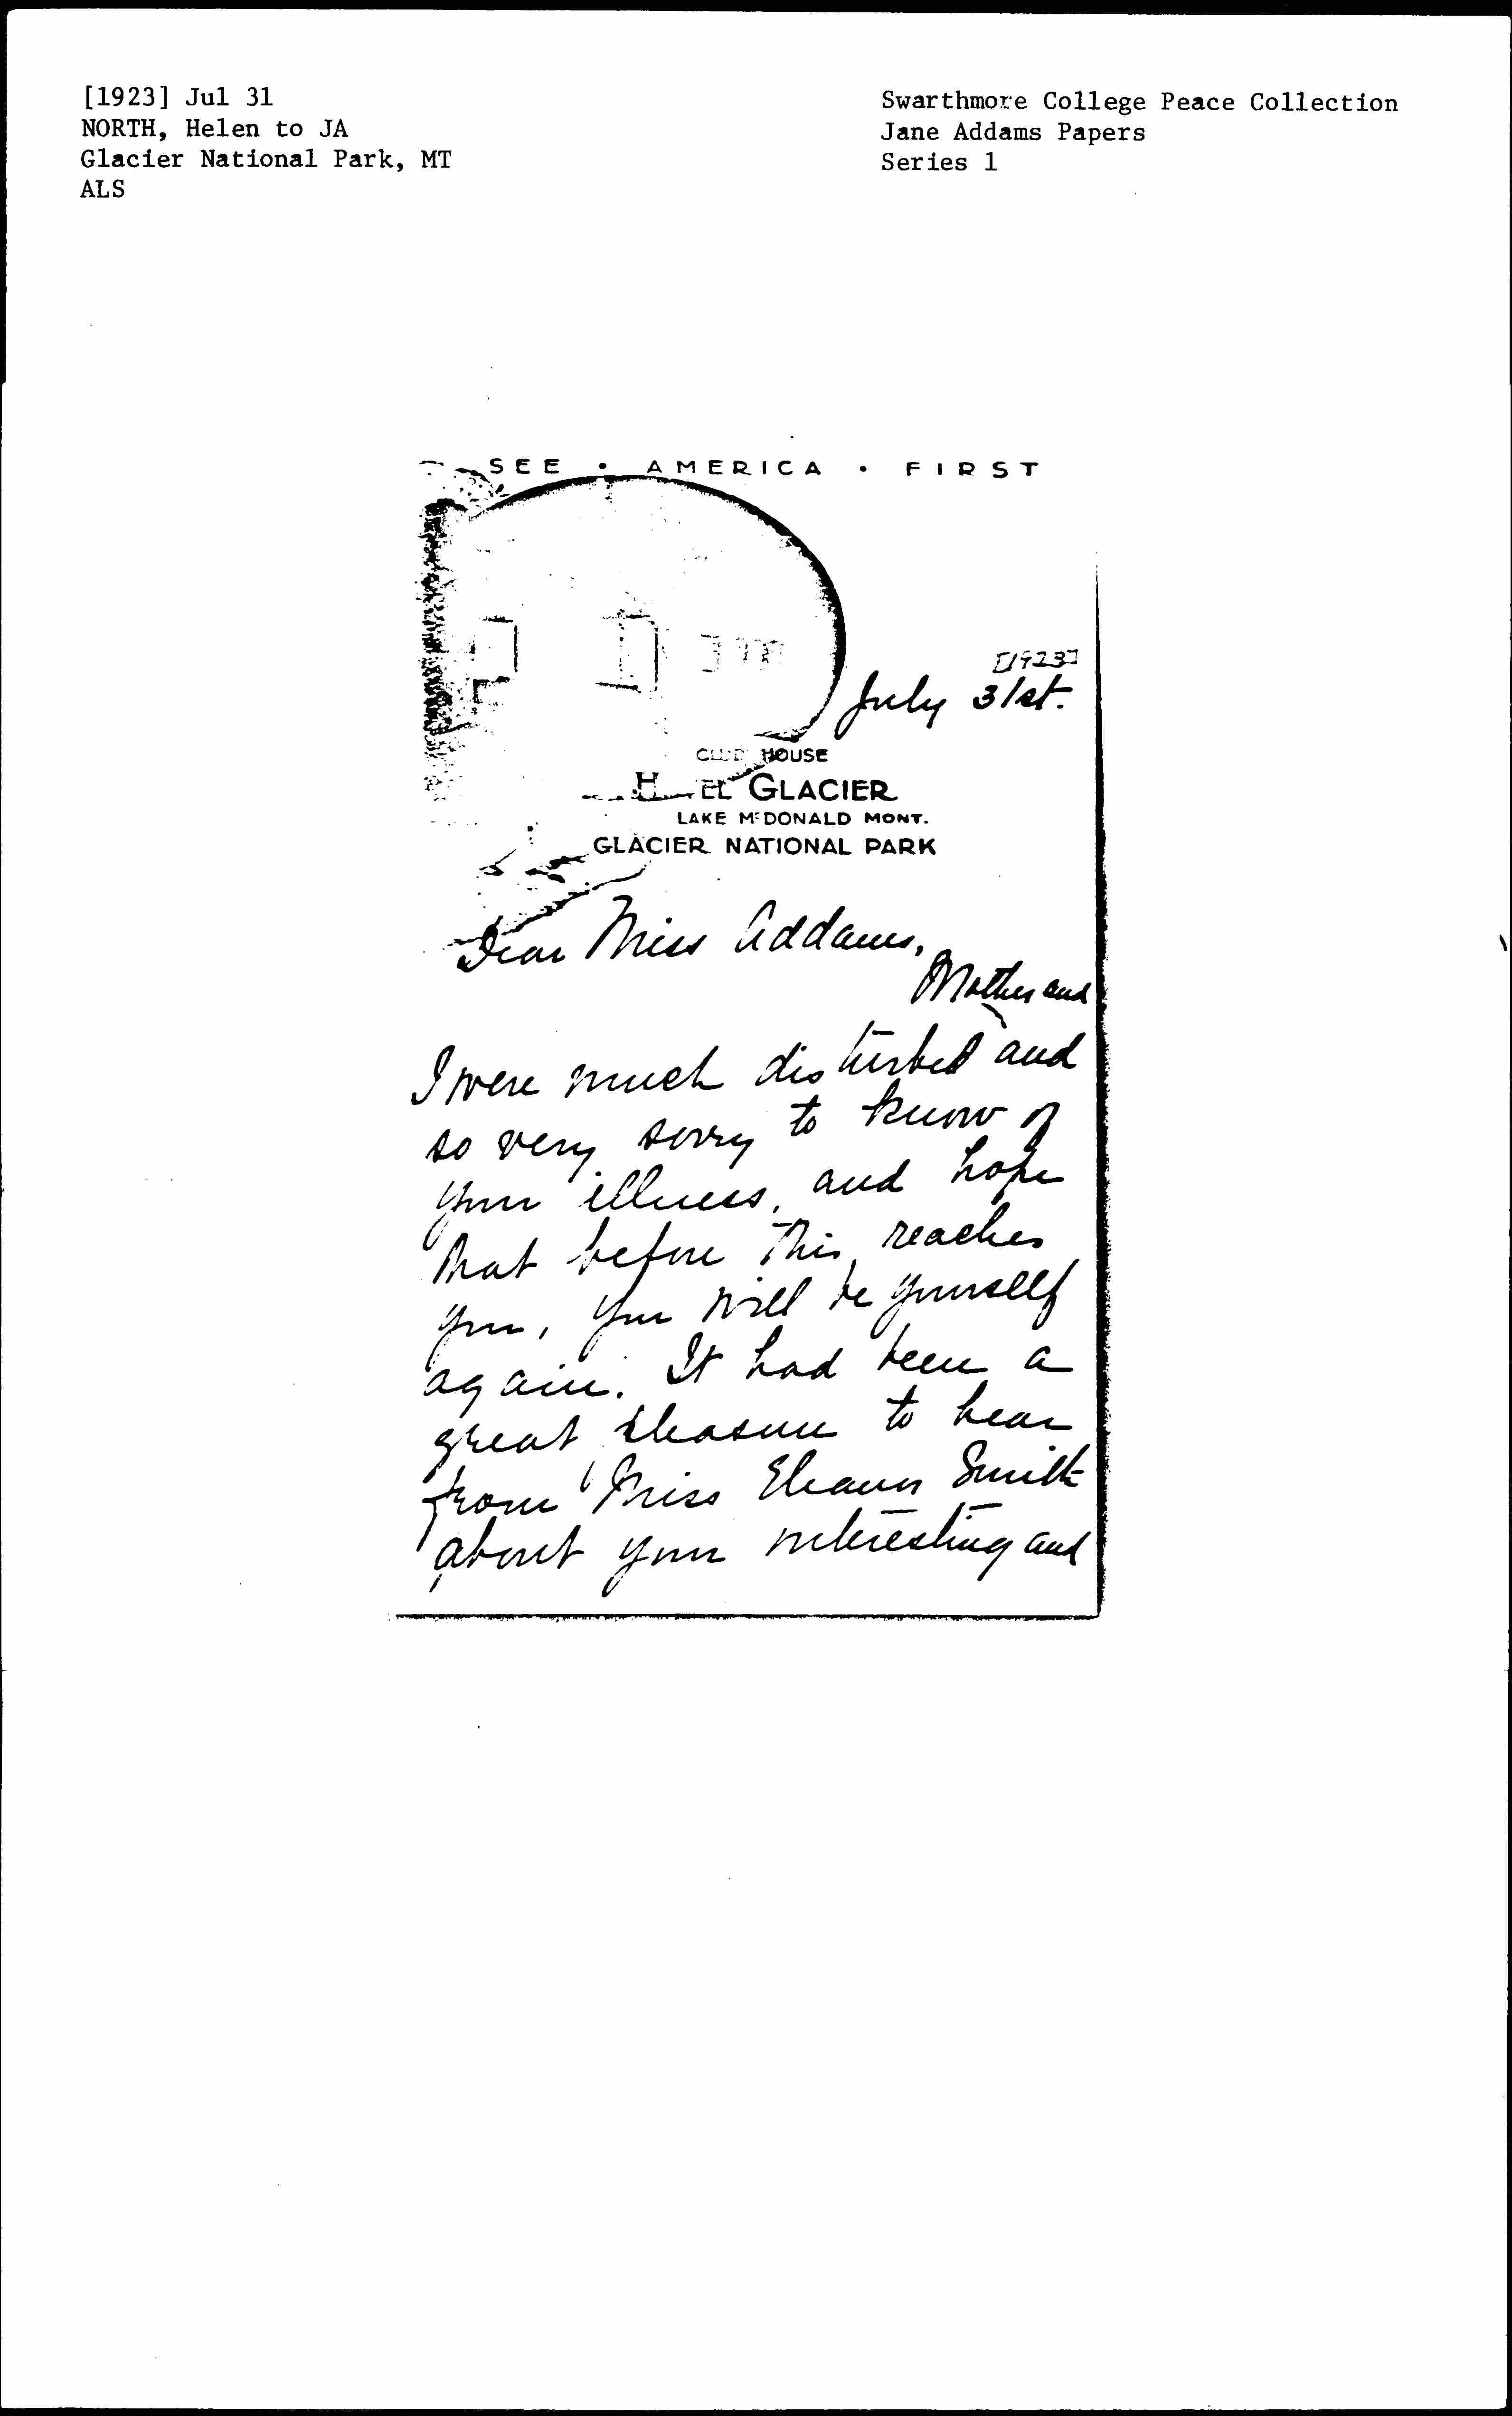 [1923] Jul 31
NORTH, Helen to JA
Glacier National Park, MT
ALS
Swarthmore College Peace Collection
Jane Addams Papers
Series 1
SEE · AMERICA · FIRST
[1923]
July 31st.
CLUB HOUSE
HOTEL GLACIER
LAKE McDONALD MONT.
GLACIER NATIONAL PARK
Dear Miss Addams,
Mother and
I were much disturbed and
so very sorry to know of
your illness, and hope
that before this reaches
you, you will be yourself
again. It had been a
great pleasure to hear
from Miss Eleanor Smith
about your interesting and